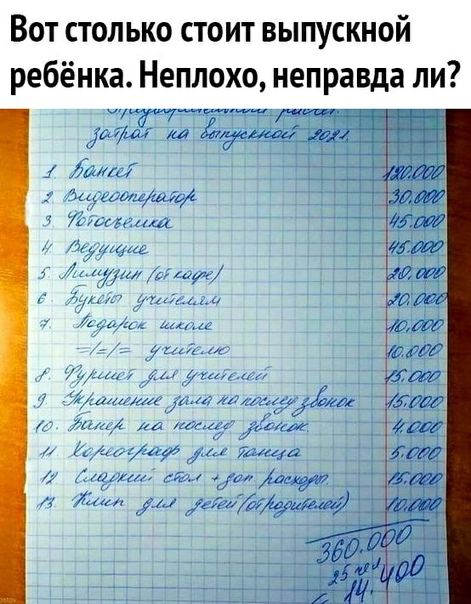 Вот столько стоит выпускной
ребёнка. Неплохо, неправда ли?
Предварительный расчёт
затрат на выпускной 2021
1 Банкет 120.000
2 Видеооператор 30.000
3 Фотосъемка 45.000
4 Ведущие 45.000
5 Лимузин (от кафе) 20.000
6 Букеты учителям 20.000
7. Подарок школе 10.000
=/=/= учителю 10.000
8. Фуршет для учителей 15.000
9 Украшение зала на послед звонок 15.000
10. Банер на послед звонок 4.000
11 Хореограф для танца 5.000
12 Сладкий стол + доп расходы. 15.000
13. Клип для детей (от родителей) 10.000
360.000
25 чел
14.400